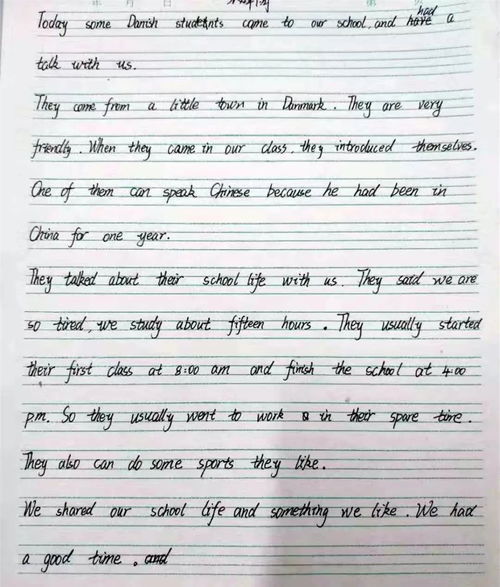 Today some Danish students came to our school and had a
talk with us.
They come from a little town in Danmark. They are very
friendly. When they came in our class, they introduced themselves.
One of them can speak Chinese because he had been in
China for one year.
They talked about their school life with us. They said we are
so tired, we study about fifteen hours. They usually started
their first class at 8:00 am and finish the school at 4:00
p.m. So they usually went to work in their spare time.
They also can do some sports they like.
We shared our school life and something we like. We had
a good time.